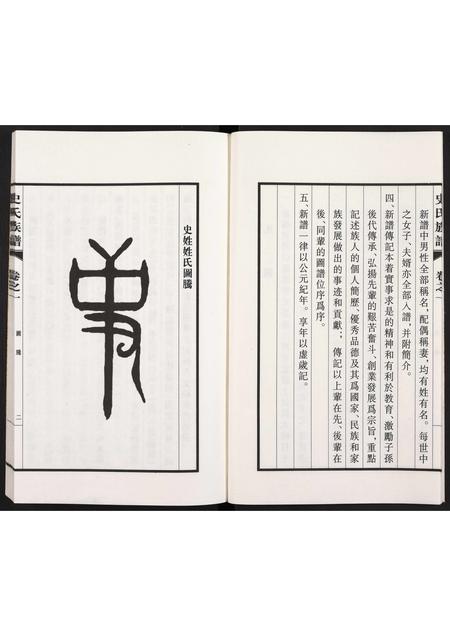 史氏族譜
新譜中男性全部稱名，配偶稱妻，均有姓有名。每世中
之女子、夫婿亦全部入譜，並附簡介。
四、新譜傳記本着實事求是的精神和有利於教育、激勵子孫
後代傳承、弘揚先輩的艱苦奮斗、創業發展爲宗旨，重點
記述族人的個人簡歷、優秀品德及其爲國家、民族和家
族發展做出的事迹和貢獻；傳記以上輩在先、後輩在
後、同輩的圖譜位序爲序。
五、新譜一律以公元紀年。享年以虛歲記。
史姓姓氏圖騰
史氏族譜
卷之一
圖騰
二